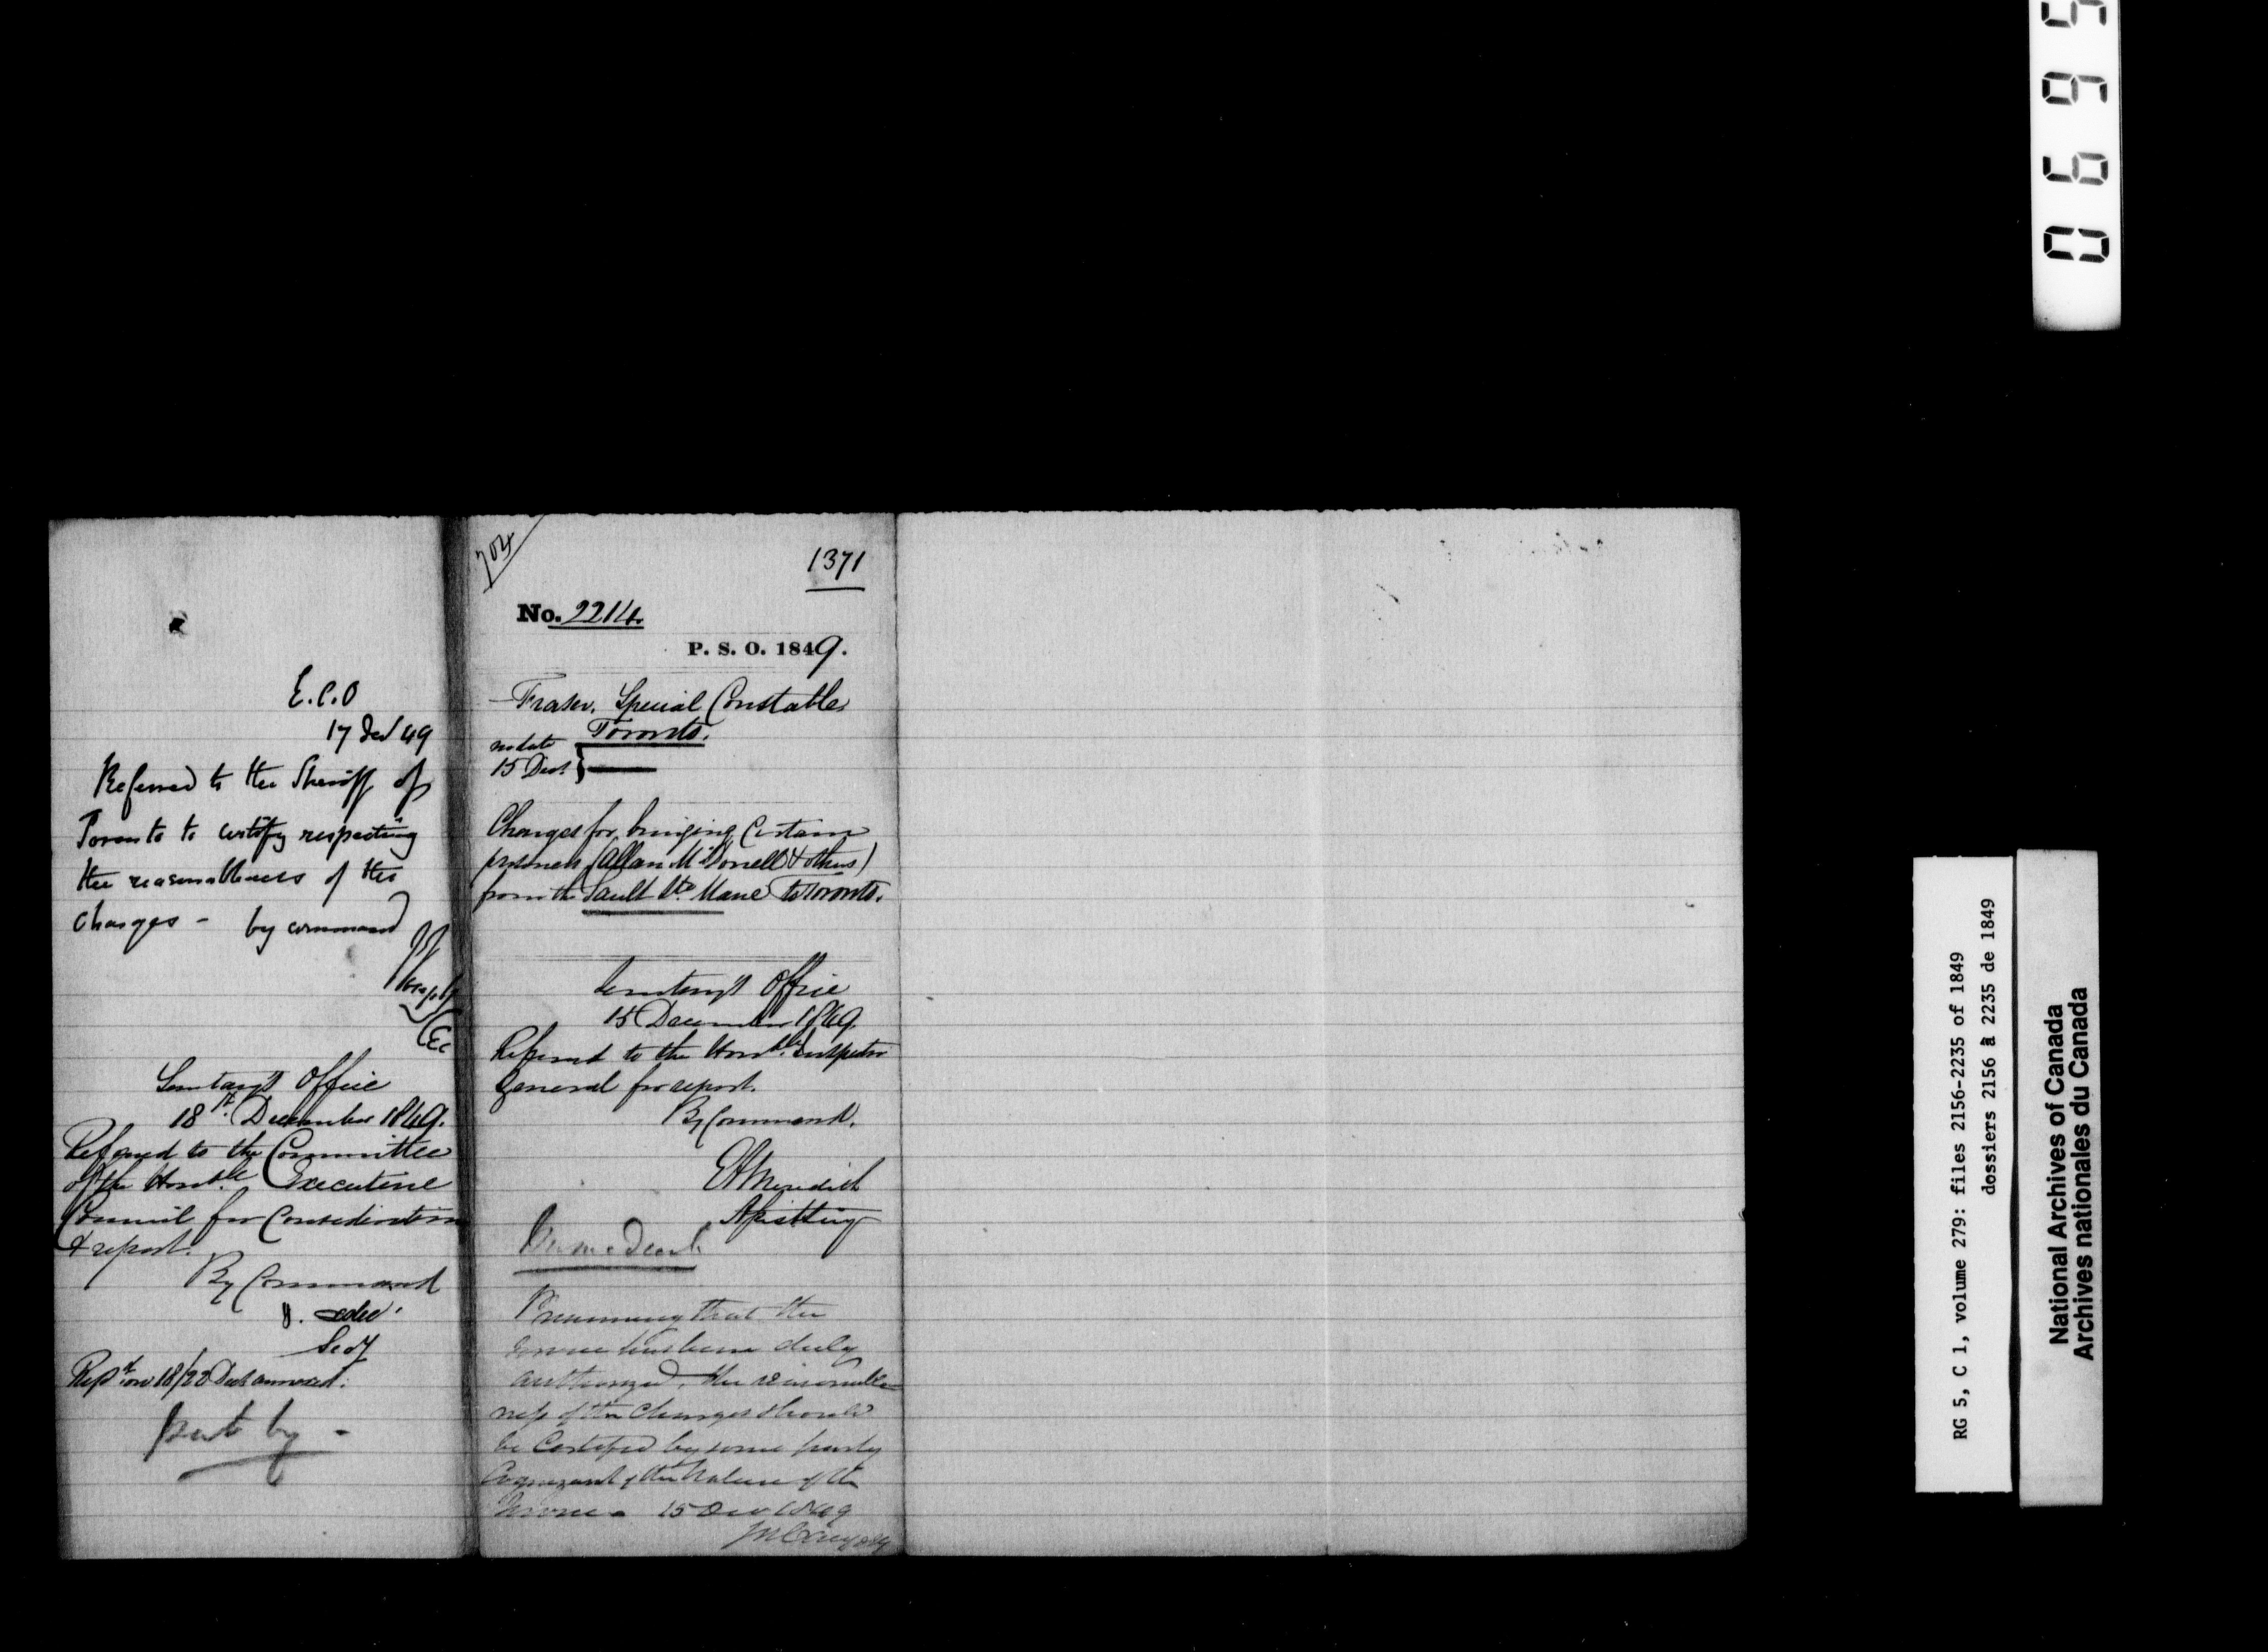 E.C.O
17 Dec/49
Referred to the Sheriff of
Toronto to certify respecting
the reasonableness of the
charges - by command
EC
Secretary's Office
18th December 1849.
Referred to the Committee
of the Honble Executive
Council for Consideration
& report.
By Command
Secy
Repd on 18/22 Dect annexed.
put by -
704
1371
No. 2214.
P. S. O. 1849.
Fraser, Special Constable
Toronto.
no date
15 Dect
Charges for bringing Certain
prisoners (Allan McDonell & others)
from the Sault Ste Marie to Toronto.
Secretary's Office
15 December 1849
Referred to the Honble Inspector
General for report.
By Command.
E A Meredith
Asst Secy
Presuming that the
service has been duly
authorized, the reasonable-
ness of the Charges should
be Certified by some party
Cognizant of the Nature of the
Service - 15 Dec 1849
0695
RG 5, C 1, volume 279: files 2156-2235 of 1849
dossiers 2156 à 2235 de 1849
National Archives of Canada
Archives nationales du Canada